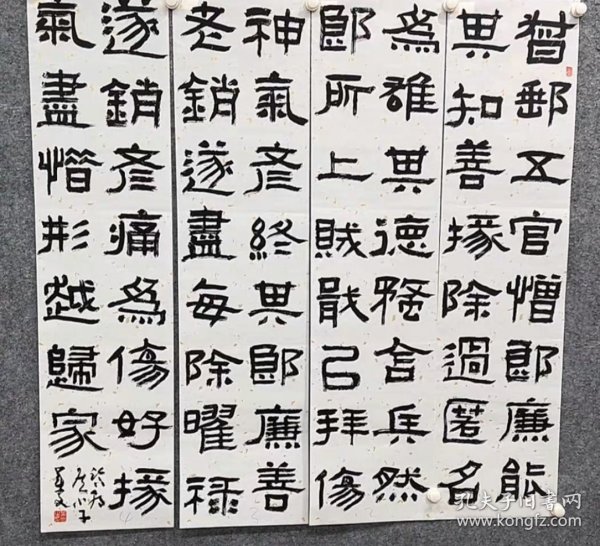 督郵五官憎郎廉能
異知善掾除過匿名
為雄異德殘舍兵然
郎所上賊戢已拜傷
神氣彥終異郎廉善
老銷遂盡每除曜祿
遂銷彥痛為傷好掾
氣盡惜形越歸家
孔夫子旧书网
www.kongfz.com